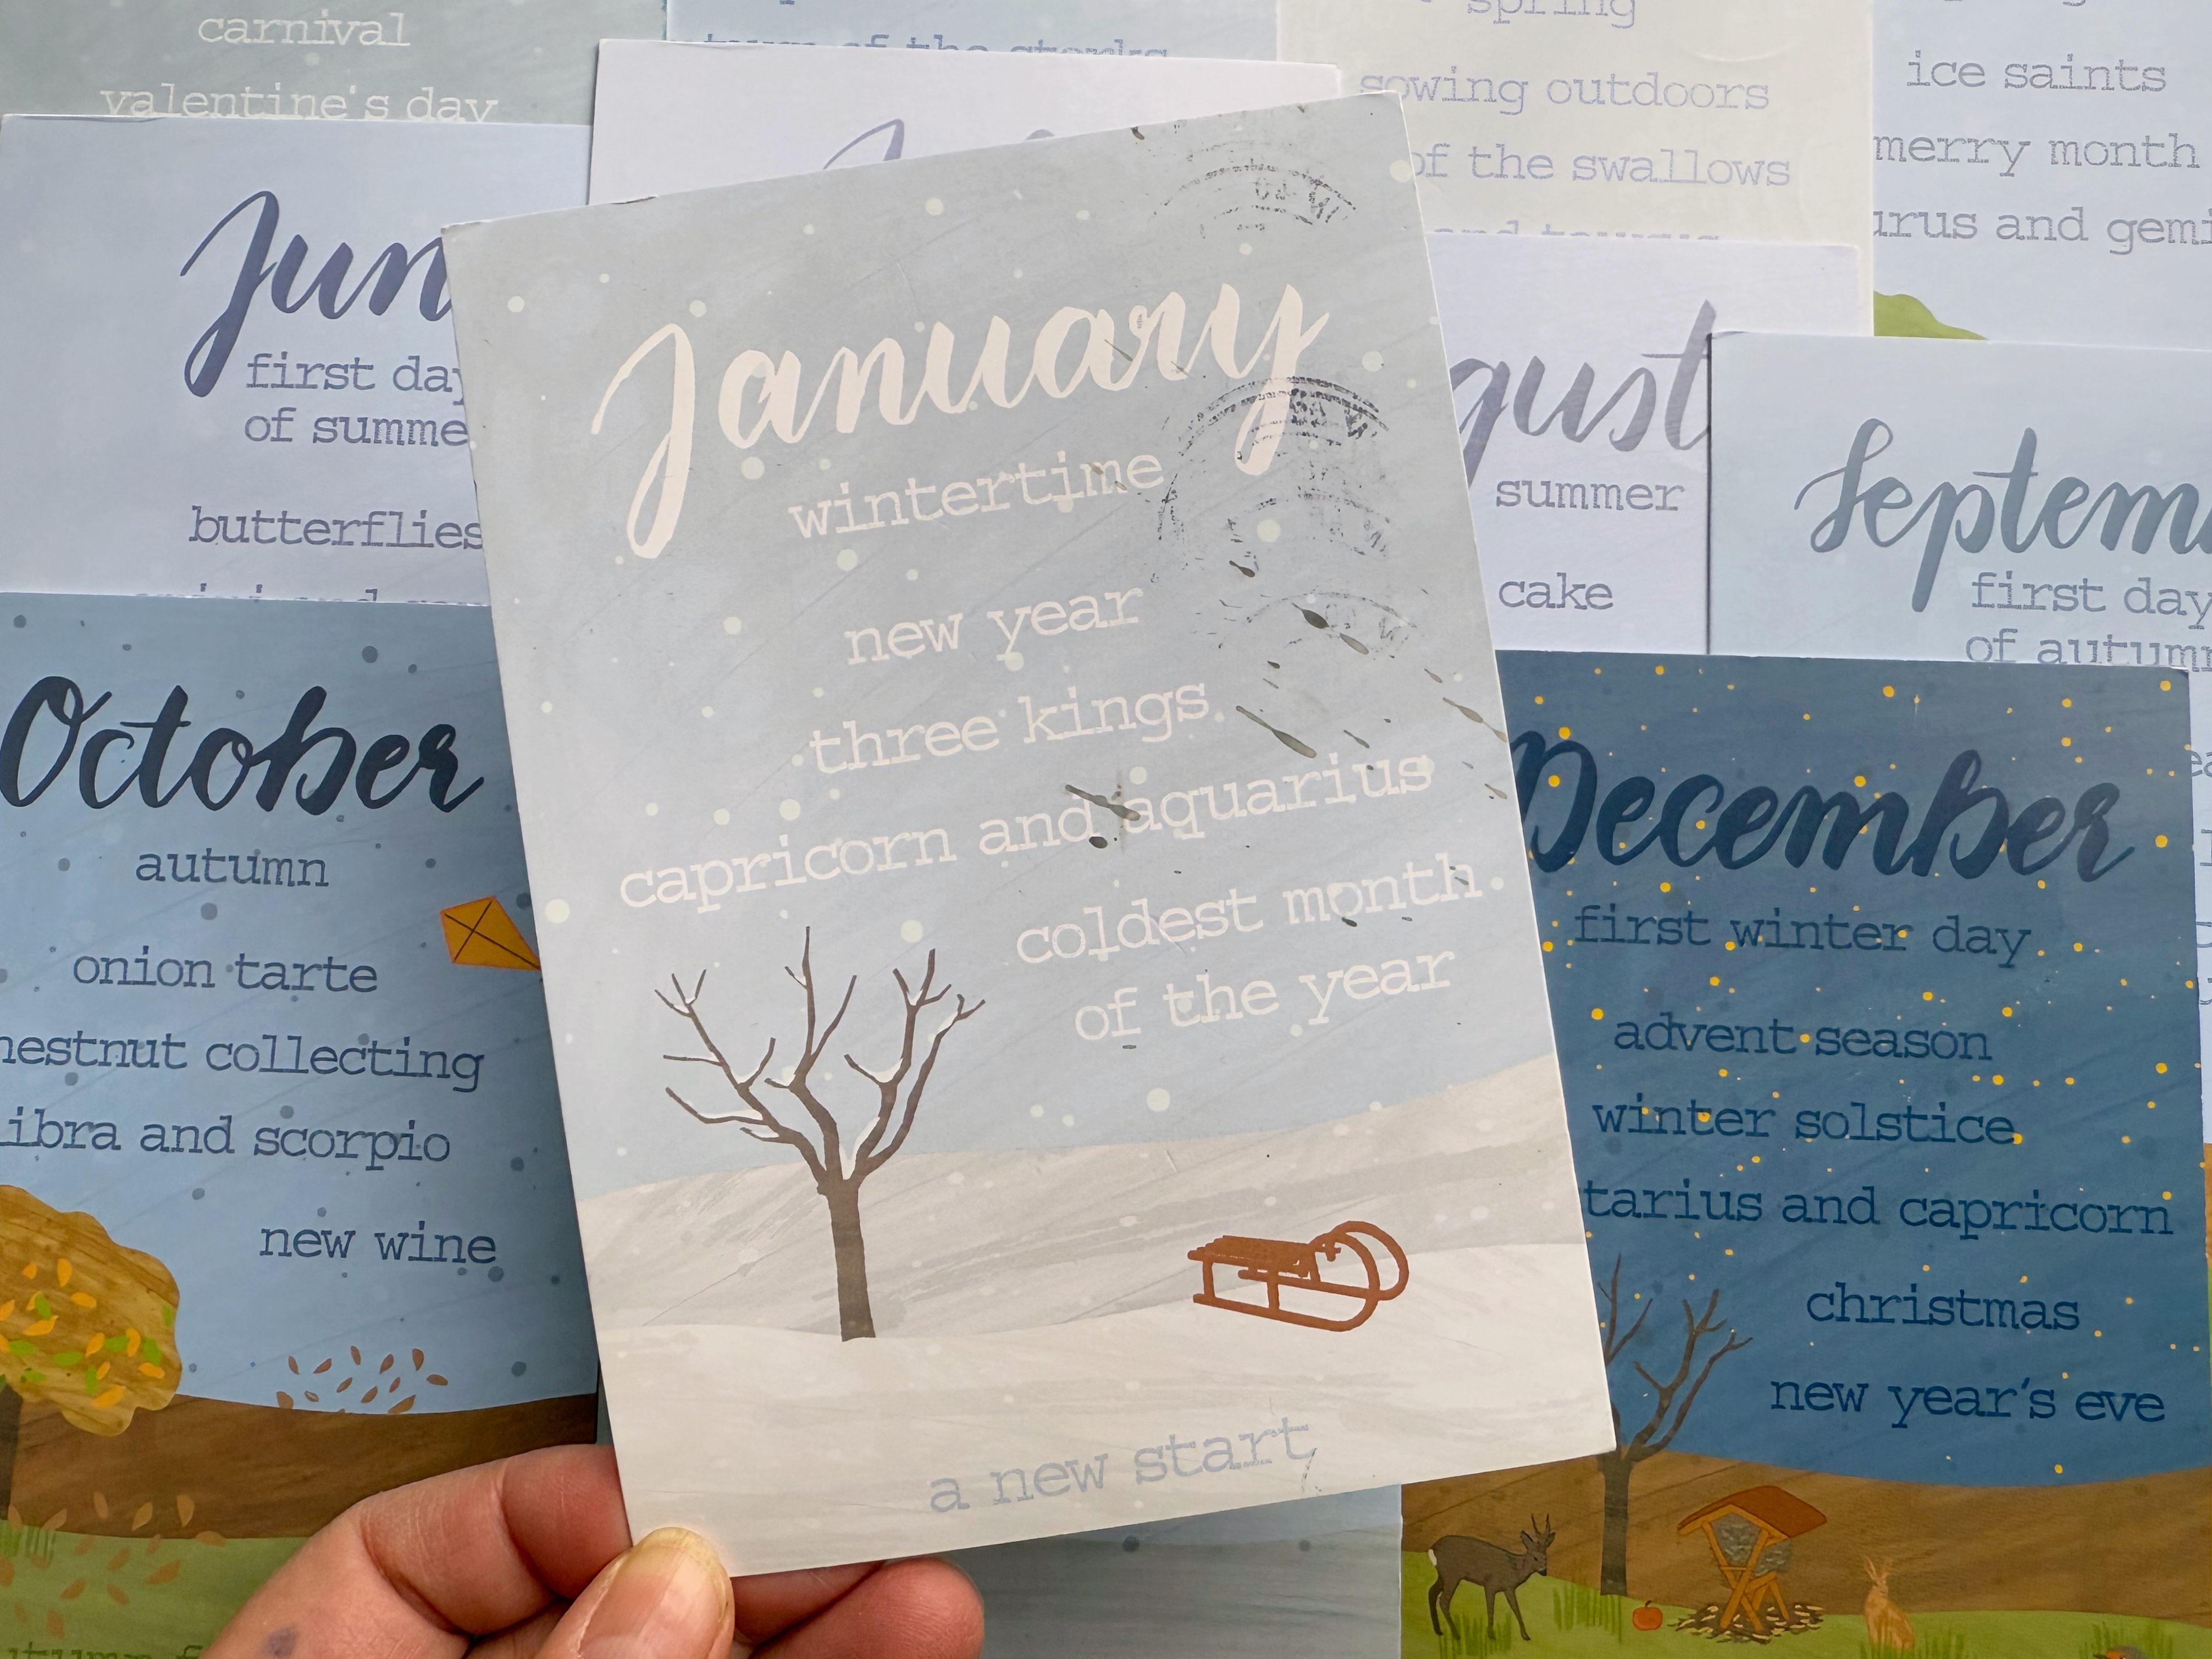 carnival
valentine's day
of the storks
spring
sowing outdoors
of the swallows
and taurus
ice saints
merry month
and gemi
Jun
first day
of summe
butterflies
January
wintertime
new year
three kings
capricorn and aquarius
coldest month
of the year
a new start
gust
summer
cake
Septem
first day
of autum
October
autumn
onion tarte
hestnut collecting
ibra and scorpio
new wine
December
first winter day
advent season
winter solstice
tarius and capricorn
christmas
new year's eve